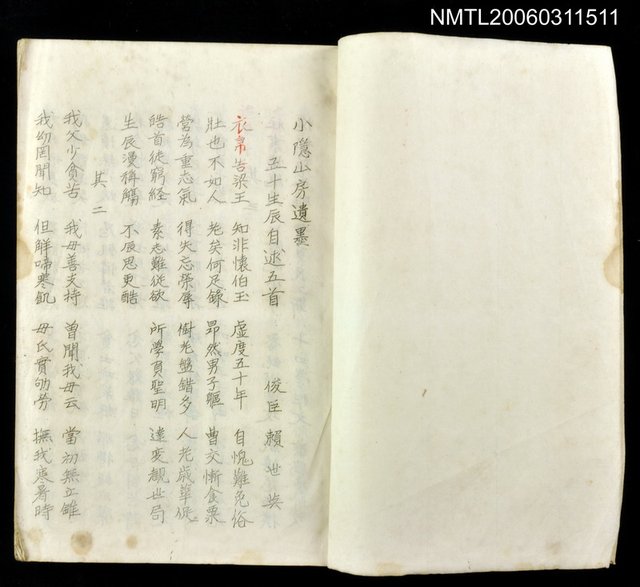 NMTL20060311511
小隱山房遺墨
五十生辰自述五首 俊臣 賴世英
衣帛告梁王 知非懷伯玉 虛度五十年 自愧難免俗
壯也不如人 老矣何足錄 昂然男子軀 曹交慚食粟
營為重志氣 得失忘榮辱 樹老盤錯多 人老歲華促
皓首徒窮經 素志難從欲 所學負聖明 遭変觀世局
生辰漫稱觴 不辰思更酷
其二
我父少貧苦 我母善支持 曾聞我母云 當初無立錐
我幼罔聞知 但解啼寒飢 母氏實劬勞 撫我寒暑時